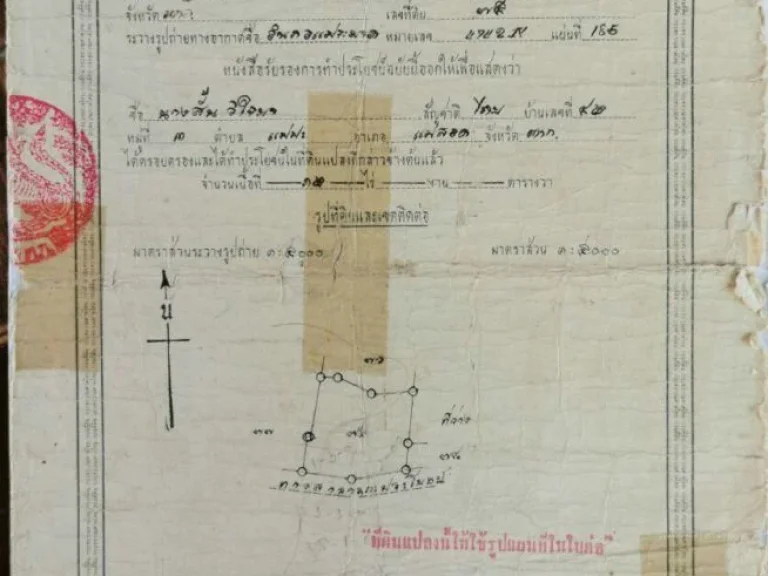 จังหวัด ตาก เลขที่ดิน ๓๕
ระวางรูปถ่ายทางอากาศชื่อ หมายเลข แผ่นที่ 186
หนังสือรับรองการทำประโยชน์ฉบับนี้ออกให้เพื่อแสดงว่า
ชื่อ นาง สัญชาติ ไทย บ้านเลขที่
หมู่ที่ ๓ ตำบล แม่ปะ อำเภอ แม่สอด จังหวัด ตาก
ได้ครอบครองและได้ทำประโยชน์ในที่ดินแปลงที่กล่าวข้างต้นแล้ว
จำนวนเนื้อที่ ๑๕ ไร่ — งาน — ตารางวา
รูปที่ดินและเขตติดต่อ
มาตราส่วนระวางรูปถ่าย ๑:๕๐๐๐ มาตราส่วน ๑:๕๐๐๐
น
๓๖
๓๗ ๓๕ ที่ว่าง
๓๘
ทางสาธารณประโยชน์
"ที่ดินแปลงนี้ให้ใช้รูปแผนที่ในใบต่อ"